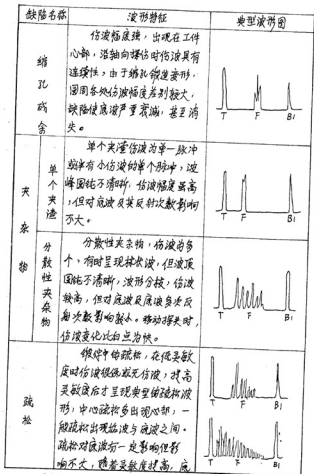 缺陷名称 波形特征 典型波形图
缩孔残余
伤波幅度强,出现在工件
心部,沿轴向探伤时伤波具有
连续性,由于缩孔锻造变形,
圆周各处伤波幅度差别较大,
缺陷使底波严重衰减,甚至消
失。
T F B1
夹杂物
单个夹渣
单个夹渣伤波为单一脉冲
或伴有小伤波的单个脉冲,波
峰圆钝不清晰,伤波幅度虽高,
但对底波及其反射次数影响
不大。
T F B1
分散性夹杂物
分散性夹杂物,伤波为多
个,有时呈现林状波,但波顶
圆钝不清晰,波形分枝,伤波
较高,但对底波及底波多次反
射次数影响较小。移动探头时,
伤波变化比白点为快。
T F B1
疏松
锻件中的疏松,在低灵敏
度时伤波很低或无伤波,提高
灵敏度后才呈现典型的疏松波
形,中心疏松多出现心部,一
般疏松出现始波与底波之间。
疏松对底波有一定影响但影
响不大,随着灵敏度提高,底
T F B1